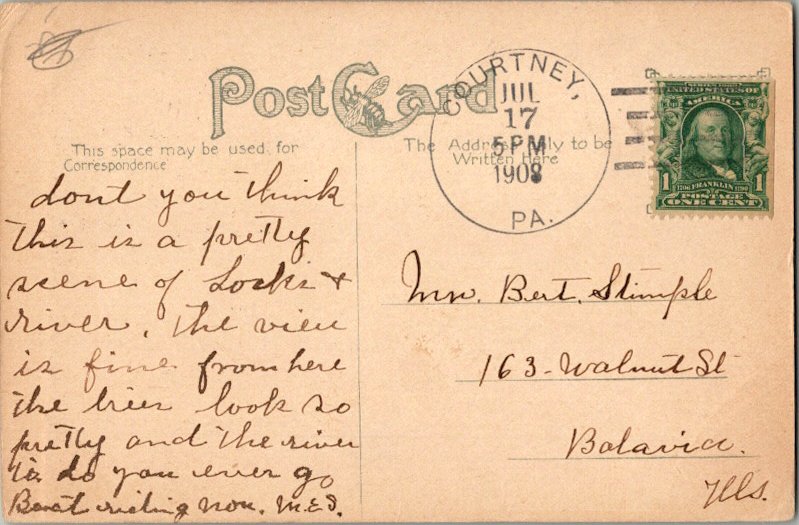 Post Card
This space may be used for
Correspondence
The Address only to be
Written Here
COURTNEY,
JUL
17
5 PM
1908
PA.
UNITED STATES OF
AMERICA
1 1706 FRANKLIN 1790 1
POSTAGE
ONE CENT
dont you think
this is a pretty
scene of Locks +
river. the view
is fine from here
the trees look so
pretty and the river
to do you ever go
Boat riding now. M.E.S.
Mr. Bert. Stimple
163 - Walnut St
Batavia.
Ills.